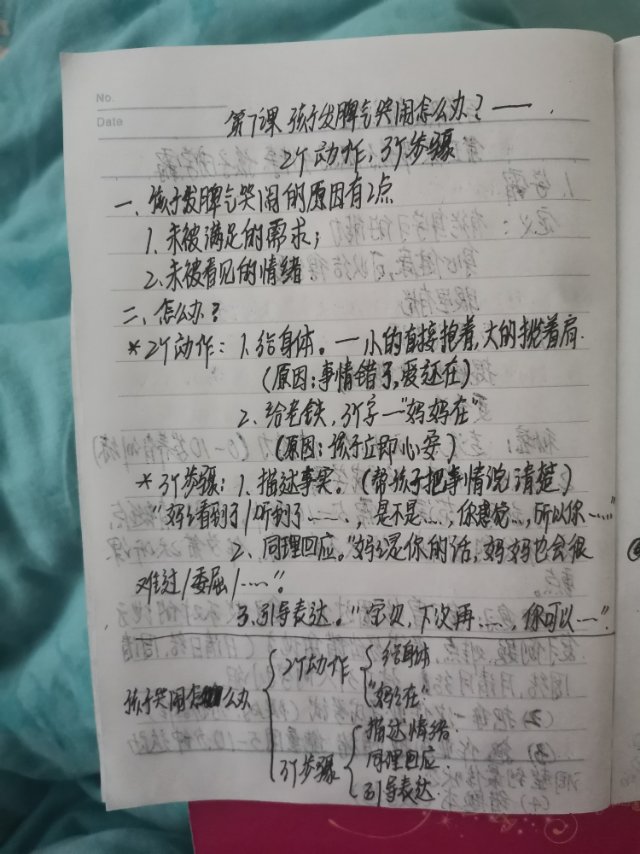 No.
Date
第7课 孩子发脾气哭闹怎么办？——
2个动作，3个步骤
一、孩子发脾气哭闹的原因有2点
1. 未被满足的需求；
2. 未被看见的情绪
二、怎么办？
*2个动作：1. 给身体。—小的直接抱着，大的揽着肩
（原因：事情错了，爱还在）
2. 给老铁，3个字—"妈妈在"
（原因：孩子立即心安）
*3个步骤：1. 描述事实。（帮孩子把事情说清楚）
"妈妈看到了/听到了……，是不是…，你感觉…，所以你……"
2. 同理回应。"妈妈是你的话，妈妈也会很
难过/委屈/……"。
3. 引导表达。"宝贝，下次再……，你可以…"
孩子哭闹怎么办
2个动作
给身体
"妈妈在"
3个步骤
描述情绪
同理回应
引导表达